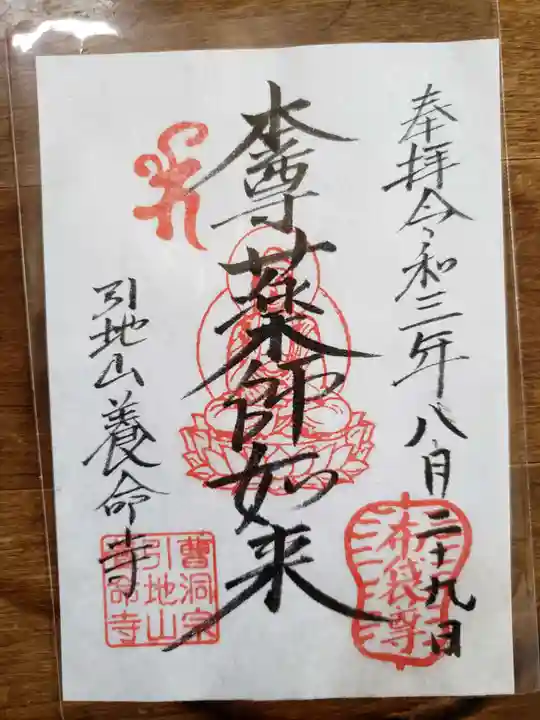 奉拝令和三年八月二十九日
布袋尊
本尊薬師如来
引地山養命寺
曹洞宗
引地山
養命寺